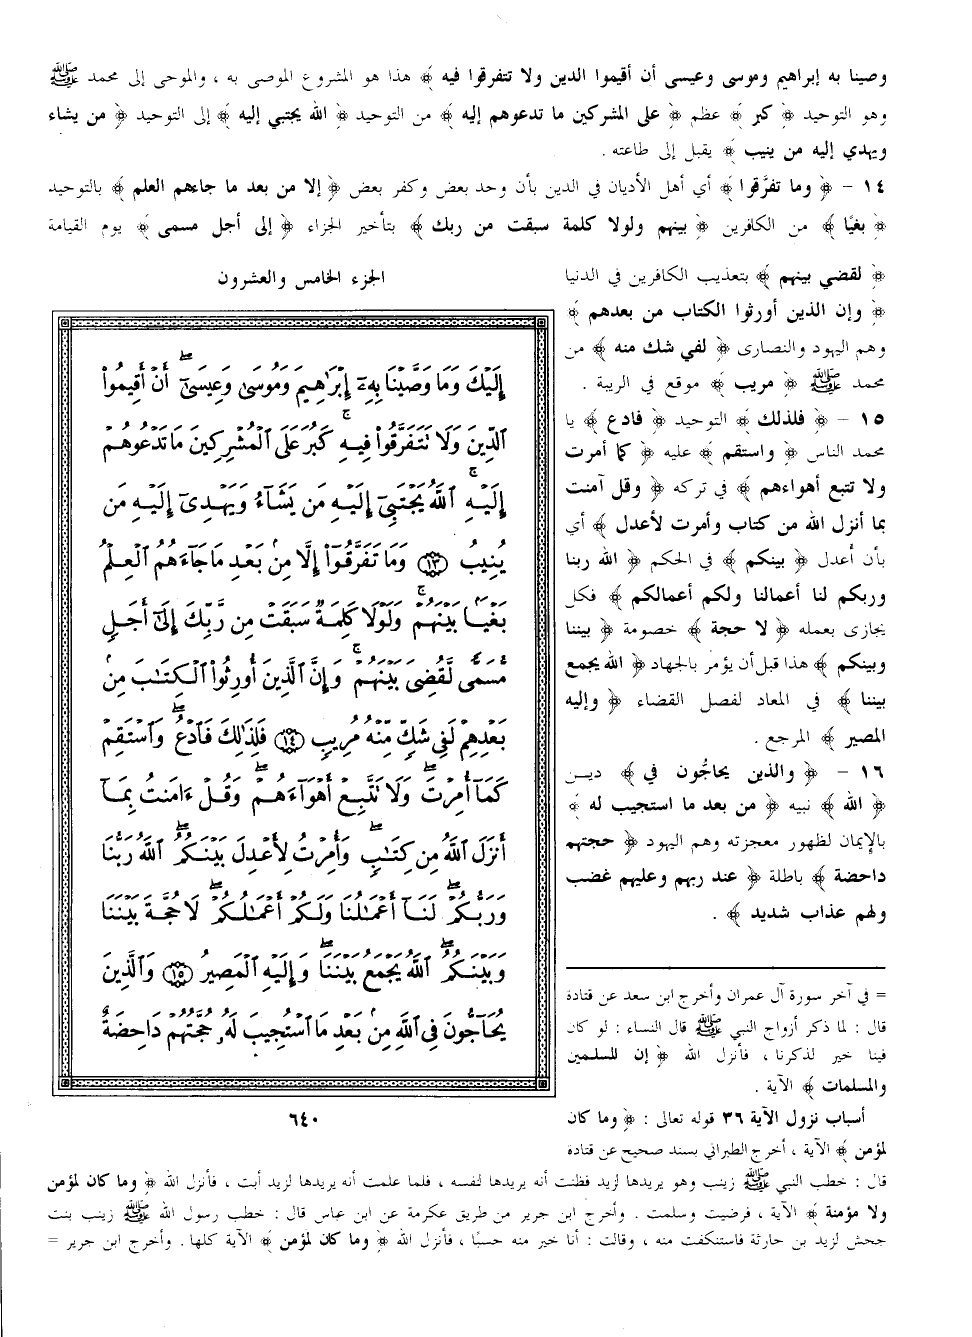 وصينا به إبراهيم وموسى وعيسى أن أقيموا الدين ولا تتفرقوا فيه ﴾ هذا هو المشروع الموصى به ، والموحى إلى محمد ﷺ
وهو التوحيد ﴿ كبر ﴾ عظم ﴿ على المشركين ما تدعوهم إليه ﴾ من التوحيد ﴿ الله يجتبي إليه ﴾ إلى التوحيد ﴿ من يشاء
ويهدي إليه من ينيب ﴾ يقبل إلى طاعته .
١٤ – ﴿ وما تفرَّقوا ﴾ أي أهل الأديان في الدين بأن وحد بعض وكفر بعض ﴿ إلا من بعد ما جاءهم العلم ﴾ بالتوحيد
﴿ بغيًا ﴾ من الكافرين ﴿ بينهم ولولا كلمة سبقت من ربك ﴾ بتأخير الجزاء ﴿ إلى أجل مسمى ﴾ يوم القيامة
﴿ لقضي بينهم ﴾ بتعذيب الكافرين في الدنيا
﴿ وإن الذين أورثوا الكتاب من بعدهم ﴾
وهم اليهود والنصارى ﴿ لفي شك منه ﴾ من
محمد ﷺ ﴿ مريب ﴾ موقع في الريبة .
١٥ – ﴿ فلذلك ﴾ التوحيد ﴿ فادع ﴾ يا
محمد الناس ﴿ واستقم ﴾ عليه ﴿ كما أمرت
ولا تتبع أهواءهم ﴾ في تركه ﴿ وقل آمنت
بما أنزل الله من كتاب وأمرت لأعدل ﴾ أي
بأن أعدل ﴿ بينكم ﴾ في الحكم ﴿ الله ربنا
وربكم لنا أعمالنا ولكم أعمالكم ﴾ فكل
يجازى بعمله ﴿ لا حجة ﴾ خصومة ﴿ بيننا
وبينكم ﴾ هذا قبل أن يؤمر بالجهاد ﴿ الله يجمع
بيننا ﴾ في المعاد لفصل القضاء ﴿ وإليه
المصير ﴾ المرجع .
١٦ – ﴿ والذين يحاجُّون في ﴾ دين
﴿ الله ﴾ نبيه ﴿ من بعد ما استجيب له ﴾
بالإيمان لظهور معجزته وهم اليهود ﴿ حجتهم
داحضة ﴾ باطلة ﴿ عند ربهم وعليهم غضب
ولهم عذاب شديد ﴾ .
الجزء الخامس والعشرون
إِلَيْكَ وَمَا وَصَّيْنَا بِهِۦٓ إِبْرَٰهِيمَ وَمُوسَىٰ وَعِيسَىٰٓ ۖ أَنْ أَقِيمُوا۟
ٱلدِّينَ وَلَا تَتَفَرَّقُوا۟ فِيهِ ۚ كَبُرَ عَلَى ٱلْمُشْرِكِينَ مَا تَدْعُوهُمْ
إِلَيْهِ ۚ ٱللَّهُ يَجْتَبِىٓ إِلَيْهِ مَن يَشَآءُ وَيَهْدِىٓ إِلَيْهِ مَن
يُنِيبُ ١٣ وَمَا تَفَرَّقُوٓا۟ إِلَّا مِنۢ بَعْدِ مَا جَآءَهُمُ ٱلْعِلْمُ
بَغْيًۢا بَيْنَهُمْ ۚ وَلَوْلَا كَلِمَةٌ سَبَقَتْ مِن رَّبِّكَ إِلَىٰٓ أَجَلٍ
مُّسَمًّى لَّقُضِىَ بَيْنَهُمْ ۚ وَإِنَّ ٱلَّذِينَ أُورِثُوا۟ ٱلْكِتَٰبَ مِنۢ
بَعْدِهِمْ لَفِى شَكٍّ مِّنْهُ مُرِيبٍ ١٤ فَلِذَٰلِكَ فَٱدْعُ ۖ وَٱسْتَقِمْ
كَمَآ أُمِرْتَ ۖ وَلَا تَتَّبِعْ أَهْوَآءَهُمْ ۖ وَقُلْ ءَامَنتُ بِمَآ
أَنزَلَ ٱللَّهُ مِن كِتَٰبٍ ۖ وَأُمِرْتُ لِأَعْدِلَ بَيْنَكُمُ ۖ ٱللَّهُ رَبُّنَا
وَرَبُّكُمْ ۖ لَنَآ أَعْمَٰلُنَا وَلَكُمْ أَعْمَٰلُكُمْ ۖ لَا حُجَّةَ بَيْنَنَا
وَبَيْنَكُمُ ۖ ٱللَّهُ يَجْمَعُ بَيْنَنَا ۖ وَإِلَيْهِ ٱلْمَصِيرُ ١٥ وَٱلَّذِينَ
يُحَآجُّونَ فِى ٱللَّهِ مِنۢ بَعْدِ مَا ٱسْتُجِيبَ لَهُۥ حُجَّتُهُمْ دَاحِضَةٌ
٦٤٠
= في آخر سورة آل عمران وأخرج ابن سعد عن قتادة
قال : لما ذكر أزواج النبي ﷺ قال النساء : لو كان
فينا خير لذكرنا ، فأنزل الله ﴿ إن المسلمين
والمسلمات ﴾ الآية .
أسباب نزول الآية ٣٦ قوله تعالى : ﴿ وما كان
لمؤمن ﴾ الآية ، أخرج الطبراني بسند صحيح عن قتادة
قال : خطب النبي ﷺ زينب وهو يريدها لزيد فظنت أنه يريدها لنفسه ، فلما علمت أنه يريدها لزيد أبت ، فأنزل الله ﴿ وما كان لمؤمن
ولا مؤمنة ﴾ الآية ، فرضيت وسلمت . وأخرج ابن جرير من طريق عكرمة عن ابن عباس قال : خطب رسول الله ﷺ زينب بنت
جحش لزيد بن حارثة فاستنكفت منه ، وقالت : أنا خير منه حسبًا ، فأنزل الله ﴿ وما كان لمؤمن ﴾ الآية كلها . وأخرج ابن جرير =